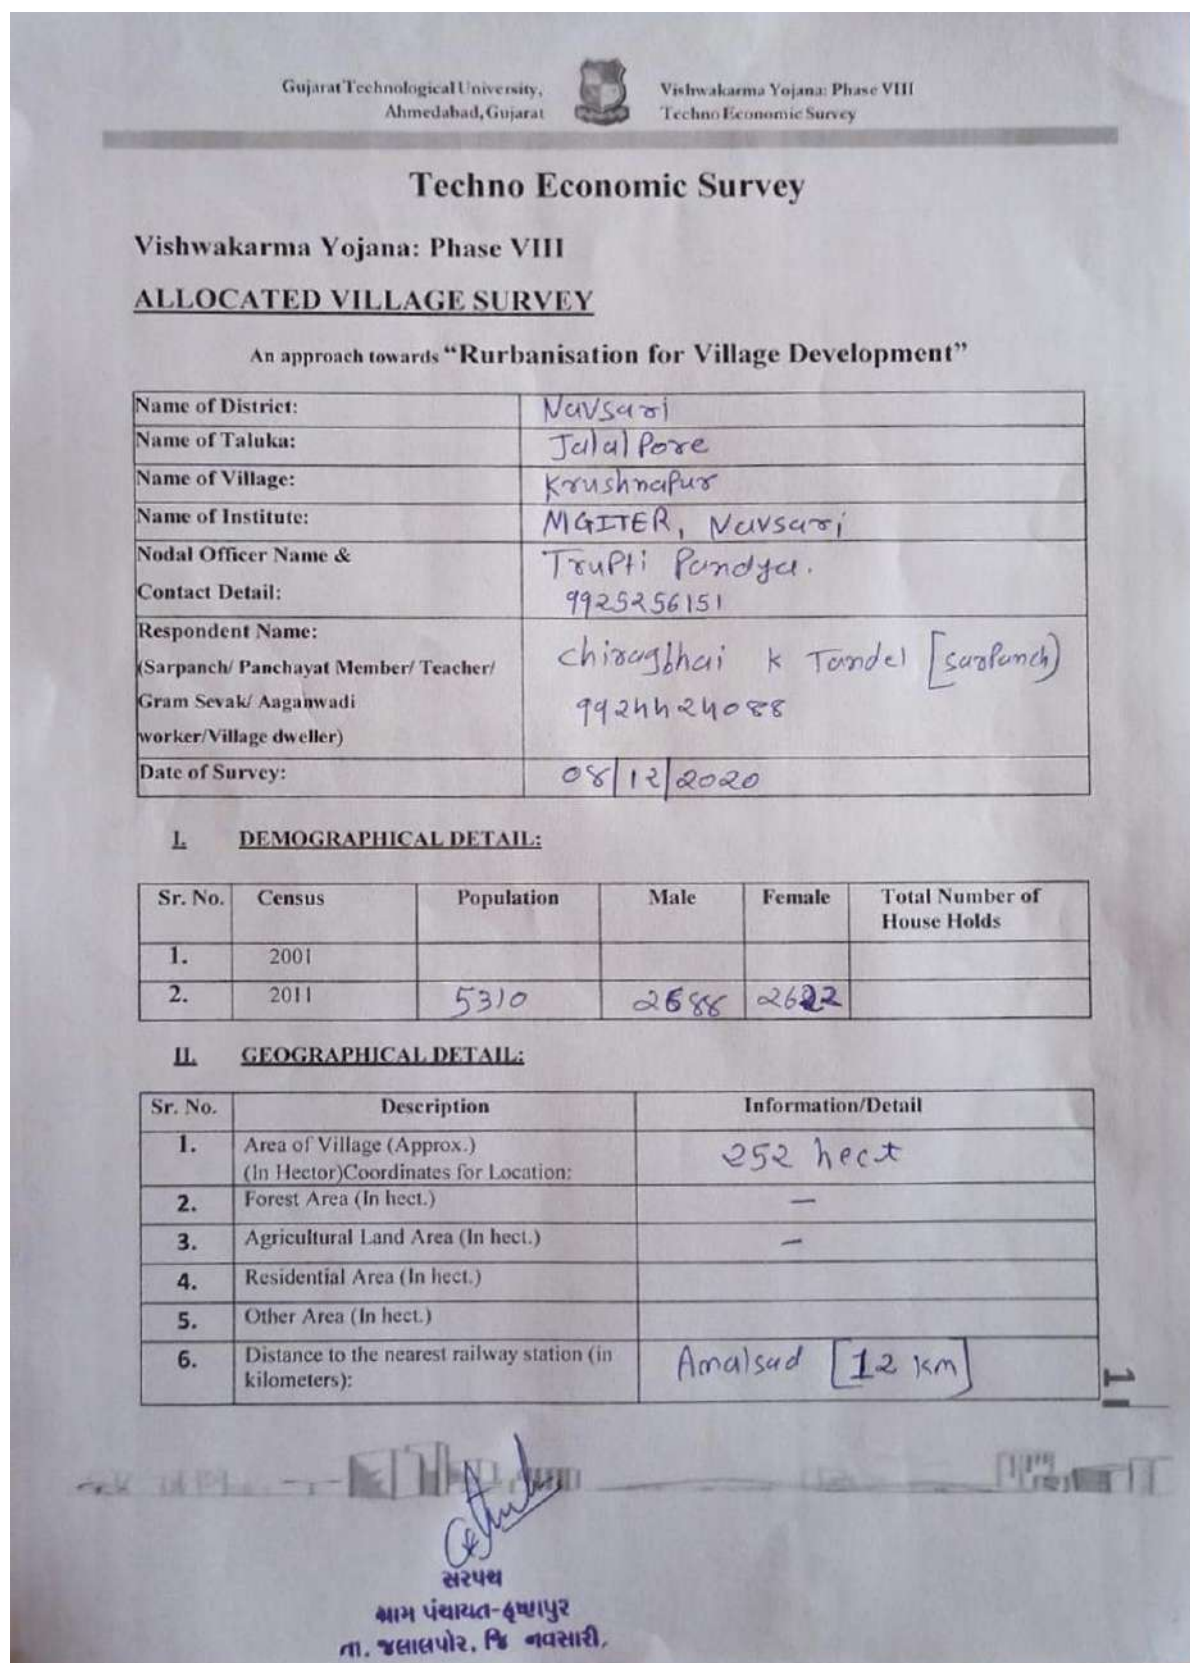 Gujarat Technological University,
Ahmedabad, Gujarat
Vishwakarma Yojana: Phase VIII
Techno Economic Survey
Techno Economic Survey
Vishwakarma Yojana: Phase VIII
ALLOCATED VILLAGE SURVEY
An approach towards “Rurbanisation for Village Development”
Name of District: Navsari
Name of Taluka: Jalalpore
Name of Village: Krushnapur
Name of Institute: MGITER, Navsari
Nodal Officer Name & Trupti Pandya.
Contact Detail: 9925256151
Respondent Name:
(Sarpanch/ Panchayat Member/ Teacher/ Chiragbhai K Tandel [Sarpanch)
Gram Sevak/ Aaganwadi 9924424088
worker/Village dweller)
Date of Survey: 08/12/2020
I. DEMOGRAPHICAL DETAIL:
Sr. No. Census Population Male Female Total Number of
House Holds
1. 2001
2. 2011 5310 2688 2622
II. GEOGRAPHICAL DETAIL:
Sr. No. Description Information/Detail
1. Area of Village (Approx.) 252 hect
(In Hector)Coordinates for Location:
2. Forest Area (In hect.) –
3. Agricultural Land Area (In hect.) –
4. Residential Area (In hect.)
5. Other Area (In hect.)
6. Distance to the nearest railway station (in Amalsad [12 km]
kilometers):
1
સરપંચ
ગ્રામ પંચાયત-કૃષ્ણપુર
તા. જલાલપોર. જિ નવસારી.